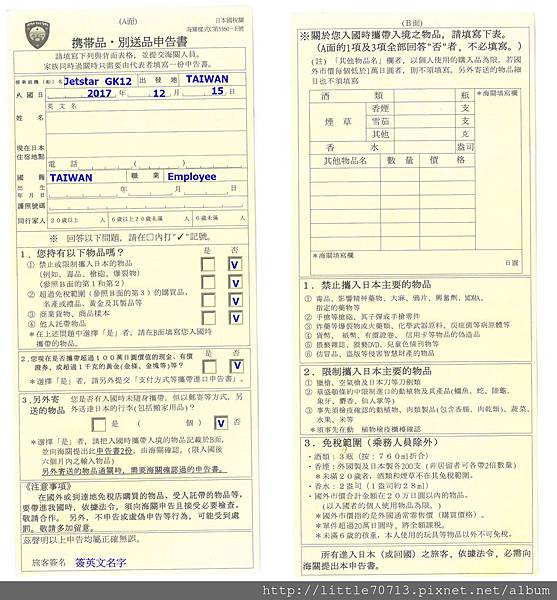 (A面)
日本國稅關
海關樣式C第5360－E號
攜帶品・別送品申告書
請填寫下列與背面表格，並提交海關人員。
家族同時過關時只需要由代表者填寫一份申告書。
搭乘航機(船)名 Jetstar GK12 出發地 TAIWAN
入國日 2017 年 12 月 15 日
英文名
姓名
現在日本
住宿地點
電話 ( )
國籍 TAIWAN 職業 Employee
出生
年月日 年 月 日
護照號碼
同行家人 20歲以上 人 6歲以上20歲未滿 人 6歲未滿 人
※ 回答以下問題，請在□內打"✓"記號。
1.您持有以下物品嗎？ 是 否
① 禁止或限制攜入日本的物品 V
(例如、毒品、槍砲、爆裂物)
(參照B面的第1和第2)
② 超過免稅範圍(參照B面的第3)的購買品、 V
名產或禮品、黃金及其製品等
③ 商業貨物、商品樣本 V
④ 他人託帶物品 V
*在上述問題中選擇「是」者，請在B面填寫您入國時
攜帶的物品。
2.您現在是否攜帶超過100萬日圓價值的現金，有價 是 否
證券，或超過1千克的黃金(金條、金塊等)等？ V
*選擇「是」者，請另外提交「支付方式等攜帶進口申告書」。
3.另外寄送的物品 您是否有入國時未隨身攜帶，但以郵寄等方式，另
外送達日本的行李(包括搬家用品)？
是 ( 個) 否 V
*選擇「是」者，請把入國時攜帶入境的物品記載於B面，
並向海關提出此申告書2份，由海關確認。(限入國後
六個月內之輸入物品)
另外寄送的物品通關時，需要海關確認過的申告書。
《注意事項》
在國外或到達地免稅店購買的物品、受人託帶的物品等，
要帶進我國時，依據法令，須向海關申告且接受必要檢查，
敬請合作。 另外，不申告或虛偽申告等行為，可能受到處
罰。敬請多加留意。
茲聲明以上申告均屬正確無誤。
旅客簽名 簽英文名字
(B面)
※關於您入國時攜帶入境之物品，請填寫下表。
(A面的1項及3項全部回答"否"者，不必填寫。)
(註)「其他物品名」欄者，以個人使用的購入品為限，若國
外市價每個低於1萬日圓者，則不須填寫。另外寄送的物品細
目也不須填寫
酒類 瓶 *海關填寫欄
煙草 香煙 支
雪茄 支
其他 克
香水 盎司
其他物品名 數量 價格
*海關填寫欄
日圓
1.禁止攜入日本主要的物品
① 毒品、影響精神藥物、大麻、鴉片、興奮劑、MDMA、
指定的藥物等
② 手槍等槍砲、其子彈或手槍零件
③ 炸藥等爆裂物或火藥類、化學武器原料、炭疽菌等病原體等
④ 貨幣、紙幣、有價證卷、信用卡等物品的偽造品
⑤ 猥褻雜誌、猥褻DVD、兒童色情刊物等
⑥ 仿冒品、盜版等侵害智慧財產的物品
2.限制攜入日本主要的物品
① 獵槍、空氣槍及日本刀等刀劍類
② 華盛頓條約中限制進口的動植物及其產品(鱷魚、蛇、陸龜、
象牙、麝香、仙人掌等)
③ 事先須檢疫確認的動植物、肉類製品(包含香腸、肉乾類)、蔬菜、
水果、米等
*須事先在動植物檢疫櫃檯確認
3.免稅範圍(乘務人員除外)
・酒類：3瓶(按：760ml折合)
・香煙：外國製及日本製各200支(非居留者可各帶2倍數量)
*未滿20歲者，酒類和煙草不在其免稅範圍。
・香水：2盎司(1盎司約28ml)
・國外市價合計金額在20萬日圓以內的物品。
(以入國者的個人使用物品為限。)
*國外市價指的是外國通常零售價(購買價格)。
*單件超過20萬日圓時，將全額課稅。
*未滿6歲的孩童，本人使用的玩具等物品以外不可免稅。
所有進入日本(或回國)之旅客，依據法令，必需向
海關提出本申告書。
http://little70713.pixnet.net/album